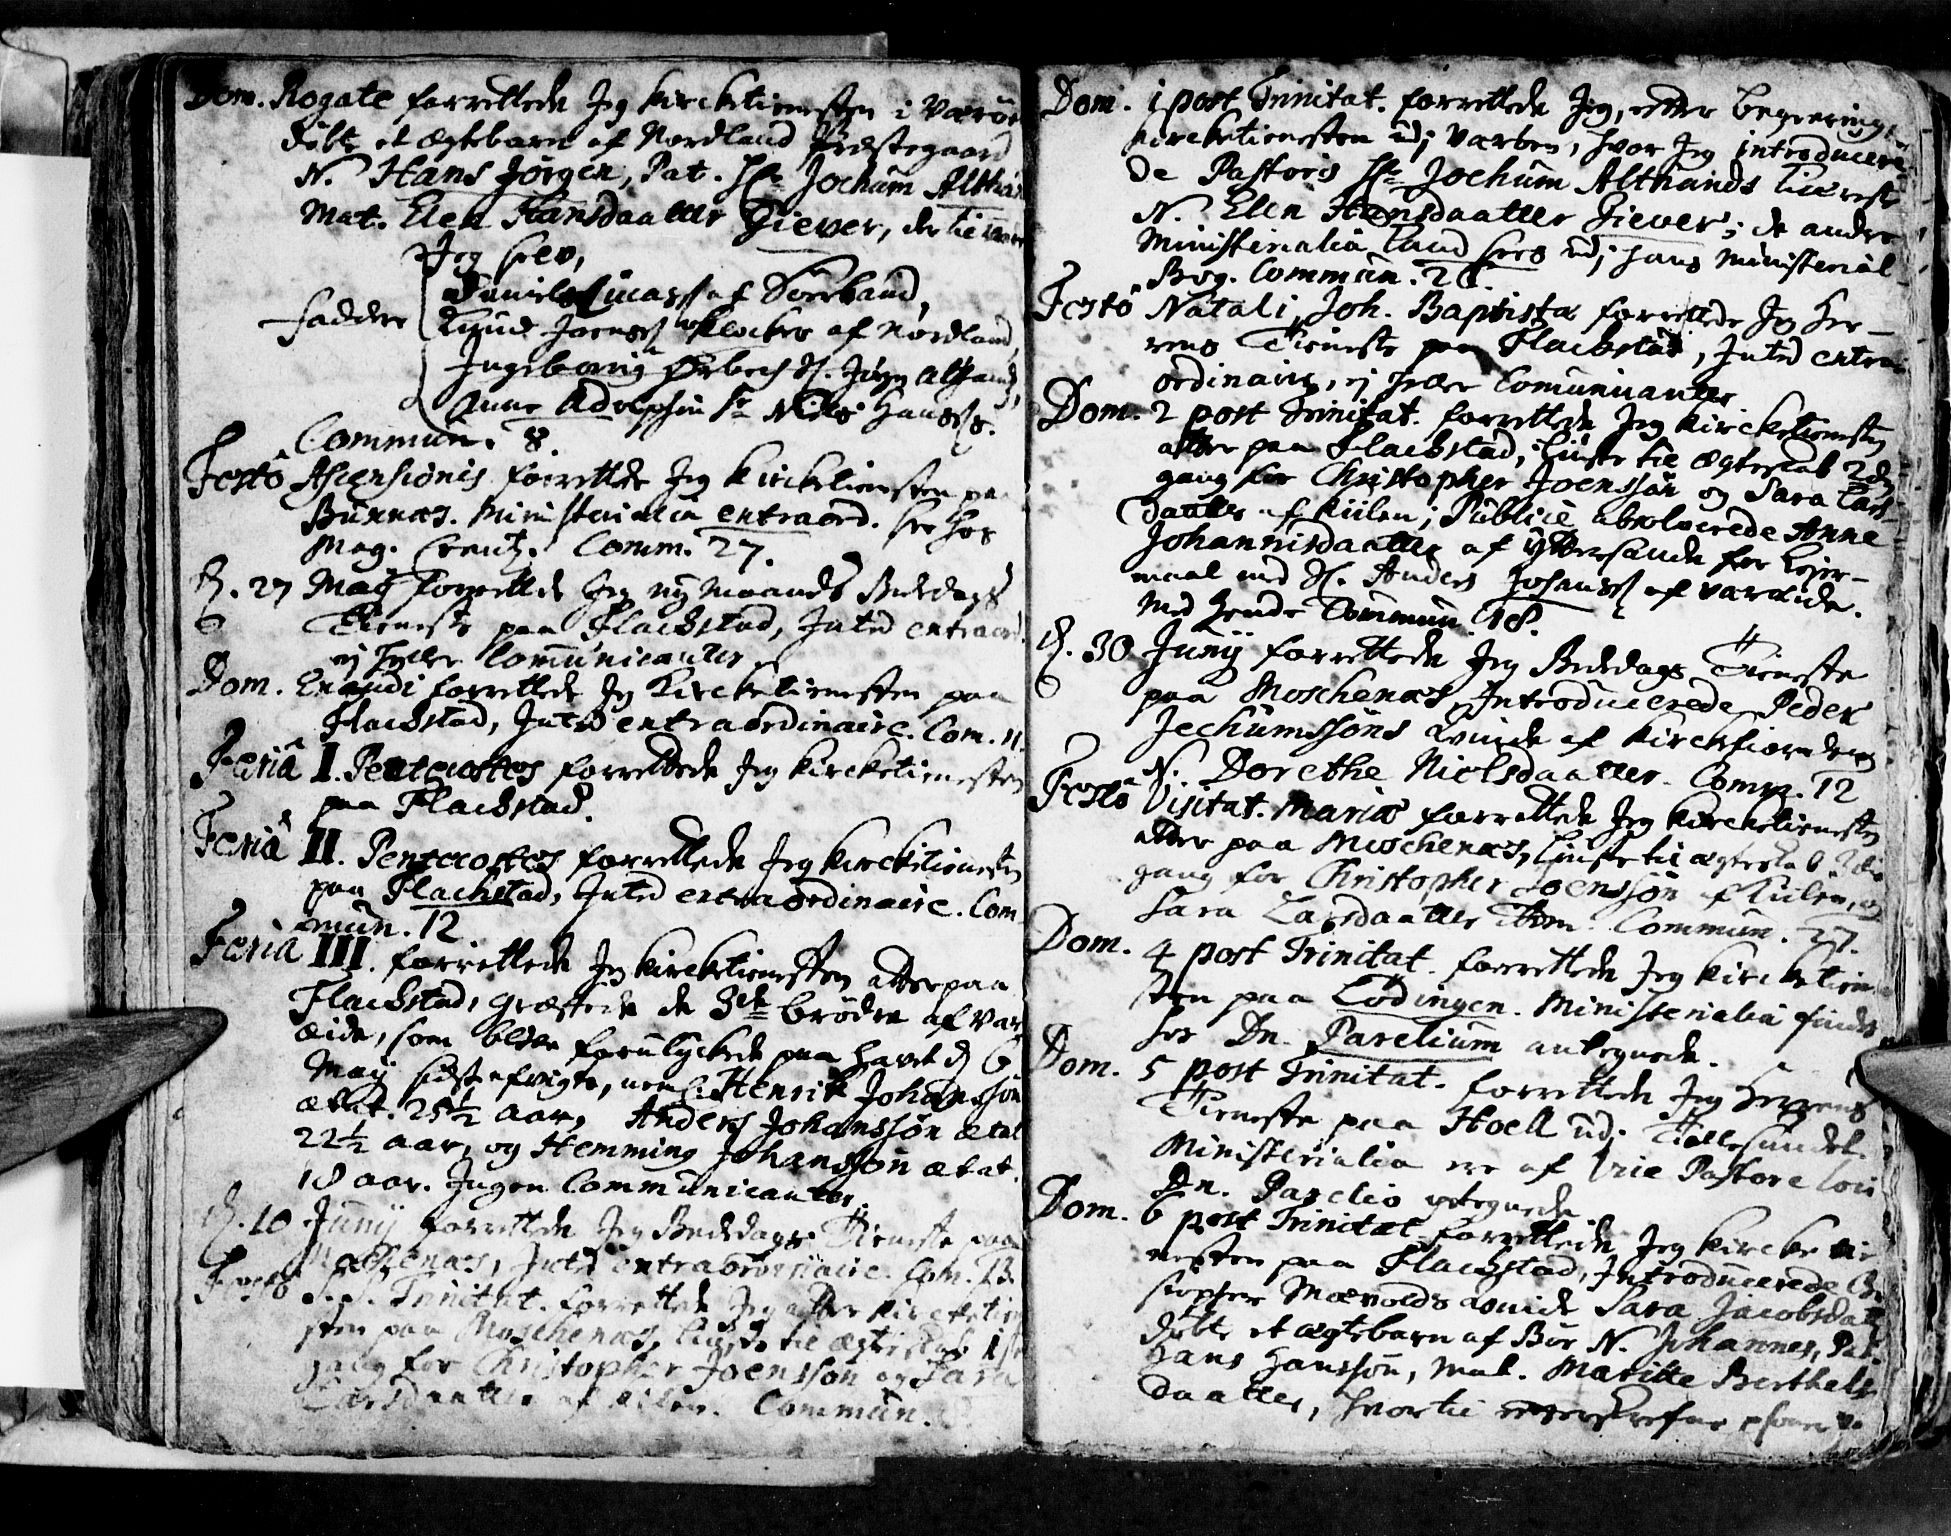 Dom. Rogate forrettede Jeg kircketienesten i Værøe
døbte et ægtebarn af Nordland Præstegaard
N. Hans Jörgen, Pat. Hr. Jochum Althan
Mat. Elen Hansdaatter Giever, der til vare
Jeg selv,
Faddre
af Sörland,
Knud Joenss. Klocker af Nordland,
Ingeborrig
Anne
Commun. 8.
Festo Ascensionis forrettede Jeg kircketienesten paa
Buxnæs. Ministerialia extraord. sees hos
Mag. Creutz. Comm. 27.
D. 27 Maij forrettede Jeg nÿ Maaneds Bededags
6 Tieneste paa Flackstad, Inted extraord.
ej heller Communicanter
Dom. Exaudi forrettede Jeg Kircketienesten paa
Flackstad, Inted extraordinaire. Com. 11.
Feriâ I. Pentecostes forrettede Jeg kircketienesten
paa Flackstad.
Feriâ II. Pentecostes forrettede Jeg kircketienesten
paa Flackstad, Inted extraordinaire. Com
mun. 12
Feria III. forrettede Jeg kircketienesten atter paa
Flackstad, græstede de 3de brödre af Var
æide, som bleve forulyckede paa havet d. 6
Maij sidst afvigte, neml: Henrik Johansson
ætat. 25½ aar, Anders Johanssön ætat
22½ aar, og Hemming Johanssön ætat.
18 aar. Ingen Communicanter.
D. 10 Junij forrettede Jeg Bededags Tieneste paa
Moschenæs, Inted extraordinaire. Com. 13.
Festo S. S. Trinitat. forrettede Jeg atter kircketiene
sten paa Moschenæs, liuste til ægteskab 1ste
gang for Christopher Joenssön og Sara
Larsdaatter af Kiilen. Commun.
Dom. 1 post Trinitat. forrettede Jeg, efter begæring,
kircketienesten udj Varöen, hvor Jeg introducere
de Pastoris Hr. Jochum Althands kiereste
N. Elen Hansdaatter Giever; de andre
Ministerialia sees udj hans Ministerial
Bog. Commun. 26.
Festo Natali Joh. Baptistæ forrettede Jeg Her-
rens Tieneste paa Flackstad, Inted extra
ordinaire, ej heller Communicanter
Dom. 2 post Trinitat. forrettede Jeg kircketienesten
atter paa Flackstad, liuste til ægteskab 2den
gang for Christopher Joenssön og Sara Lars-
daatter af Kiilen; Publicè absolverede Anne
Johannisdaatter af Yttersande for Leier-
maal med Anders Johanss. af Varæide.
Med hende Commun. 18.
D. 30 Junij forrettede Jeg Bededags Tieneste
6 paa Moschenæs, Introducerede Peder
Jochumssöns qvinde af Kirckfiorden
N. Dorethe Nielsdaatter. Comm. 12
Festo Visitat. Mariæ forrettede Jeg kircketienesten
atter paa Moschenæs, liuste til ægteskab 3die
gang for Christopher Joenssön af Kiilen, og
Sara Larsdaatter Ibm. Commun. 27.
Dom. 4 post Trinitat. forrettede Jeg kircketiene
sten paa Lödingen. Ministerialia findes
hos Dn. Parelium antegnede.
Dom. 5 post Trinitat. forrettede Jeg Herrens
Tieneste paa Hoell udj Tiellesundet.
Ministerialia ere af Vice Pastore loci
Dn. Parelio optegnede
Dom. 6 post Trinitat forrettede Jeg kircketie
nesten paa Flackstad, Introducerede Chr
stopher Mærvolds qvinde Sara Jacobsdatt
døbte et ægtebarn af Böe N. Johannes, Pat.
Hans Hanssön, Mat. Maritte Berthels
daatter, hvortil efterskrefne